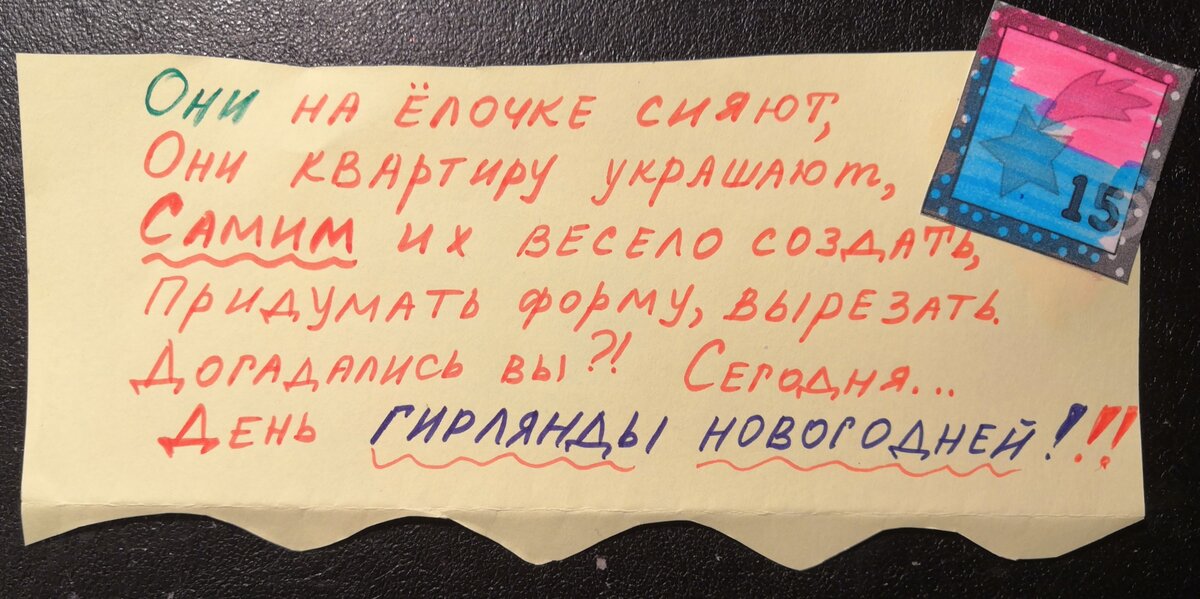 Они на ёлочке сияют,
Они квартиру украшают,
Самим их весело создать,
Придумать форму, вырезать.
Догадались вы?! Сегодня...
День гирлянды новогодней!!!
15